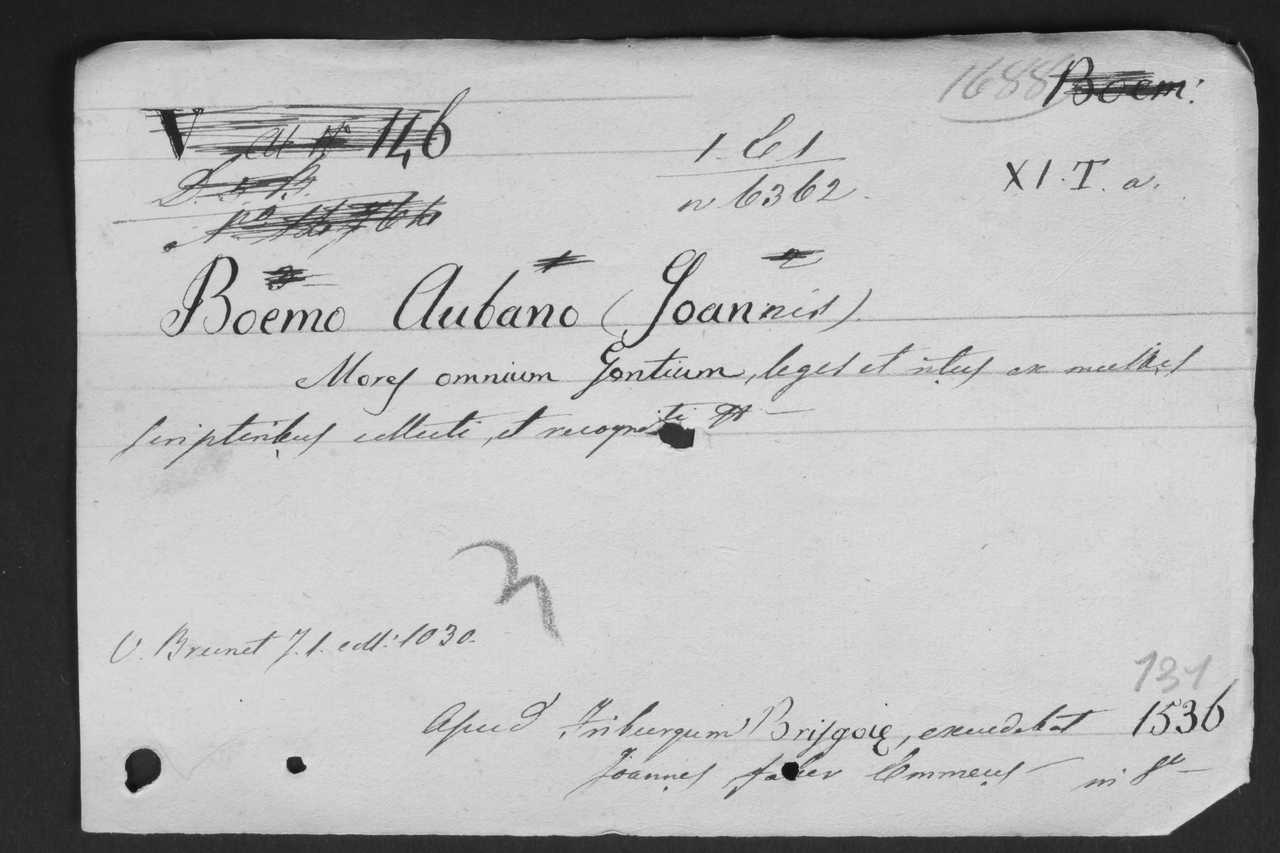 1688 Boem:
V 146
1. C 1
n 6362.
XI. T. a.
Boemo Aubano (Joannis)
Mores omnium Gentium, leges et ritus ex multis
scriptoribus collecti, et recogniti
V. Brunet T. 1. coll: 1030.
131
Apud Friburgum Brisgoie, excudebat 1536
Joannes faber Emmeus in 8º